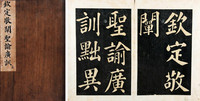 欽定敬
闡
聖諭廣
訓黜異
欽定敬闡聖諭廣訓